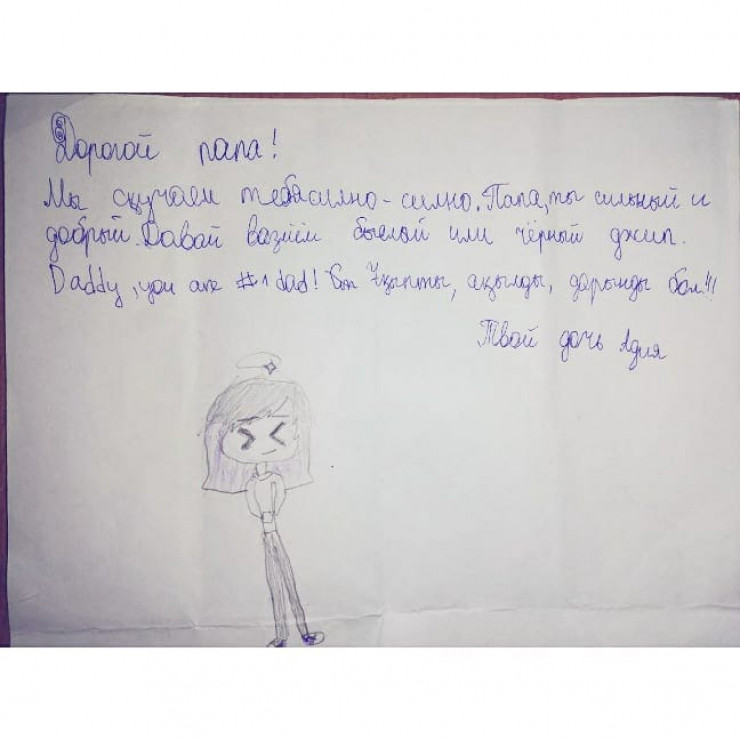 Дорогой папа!
Мы скучаем тебясилно-силно. Папа, ты сильный и
добрый. Давай вазмём быелой или чёрный джип.
Daddy, you are #1 dad! ықыпты, ақылды, дарынды бол!!!
Твой дочь Адия